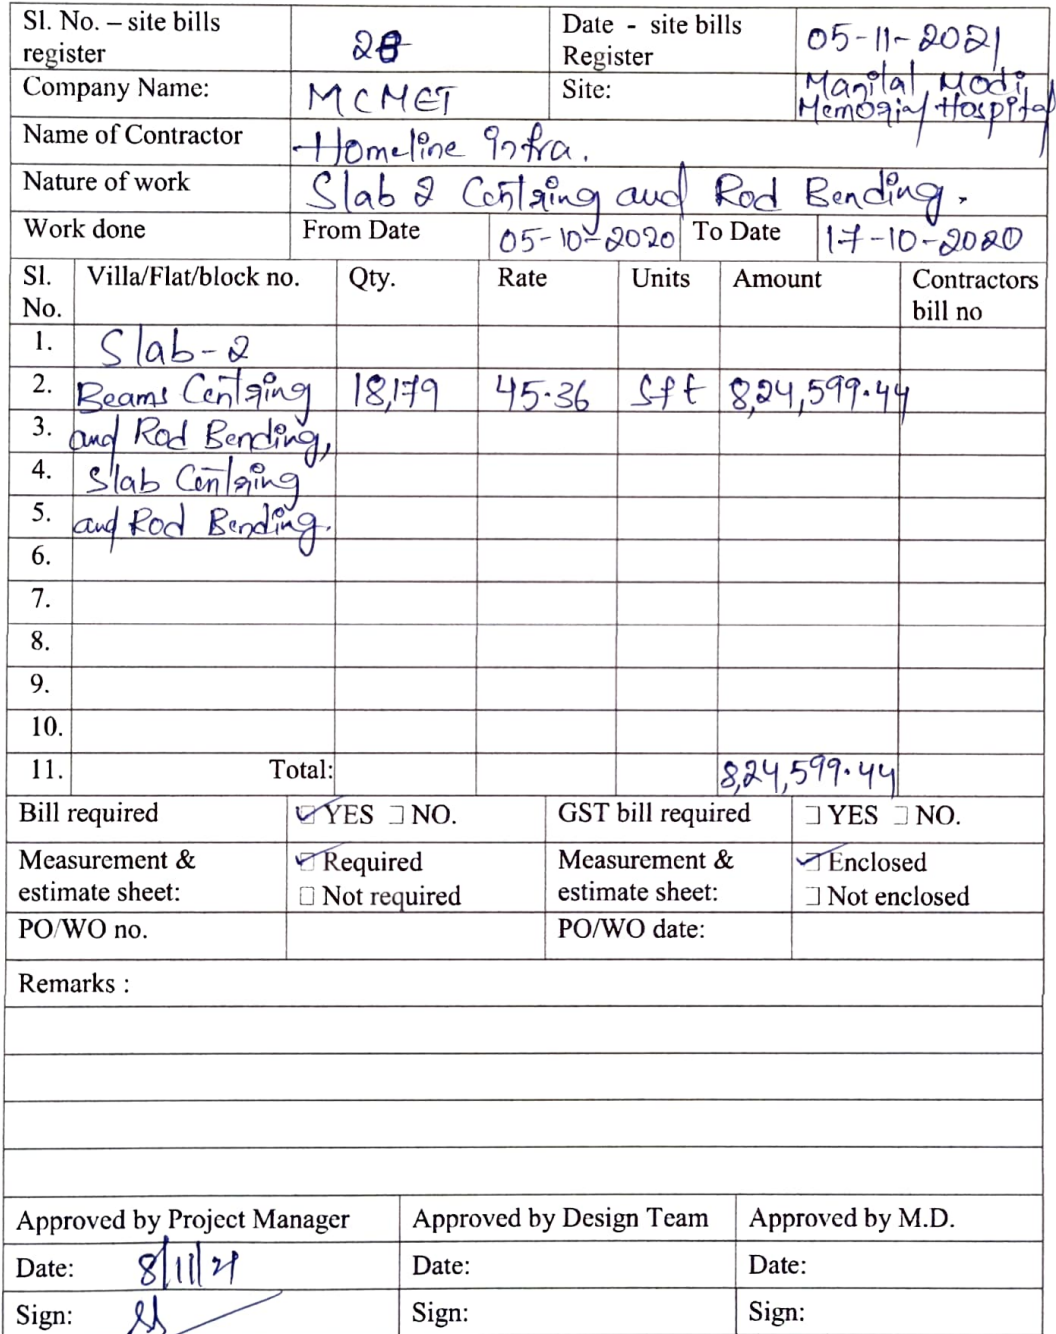 Sl. No. – site bills register 28 Date - site bills Register 05-11-2021
Company Name: MCMET Site: Manilal Modi Memorial Hospital
Name of Contractor Homeline Infra.
Nature of work Slab 2 Centring and Rod Bending.
Work done From Date 05-10-2020 To Date 17-10-2020
Sl. No. Villa/Flat/block no. Qty. Rate Units Amount Contractors bill no
1. Slab-2
2. Beams Centring 18,179 45.36 Sft 8,24,599.44
3. and Rod Bending,
4. Slab Centring
5. and Rod Bending.
6.
7.
8.
9.
10.
11. Total: 8,24,599.44
Bill required YES NO. GST bill required YES NO.
Measurement & estimate sheet: Required Not required Measurement & estimate sheet: Enclosed Not enclosed
PO/WO no. PO/WO date:
Remarks :
Approved by Project Manager Approved by Design Team Approved by M.D.
Date: 8/11/21 Date: Date:
Sign: Sign: Sign: